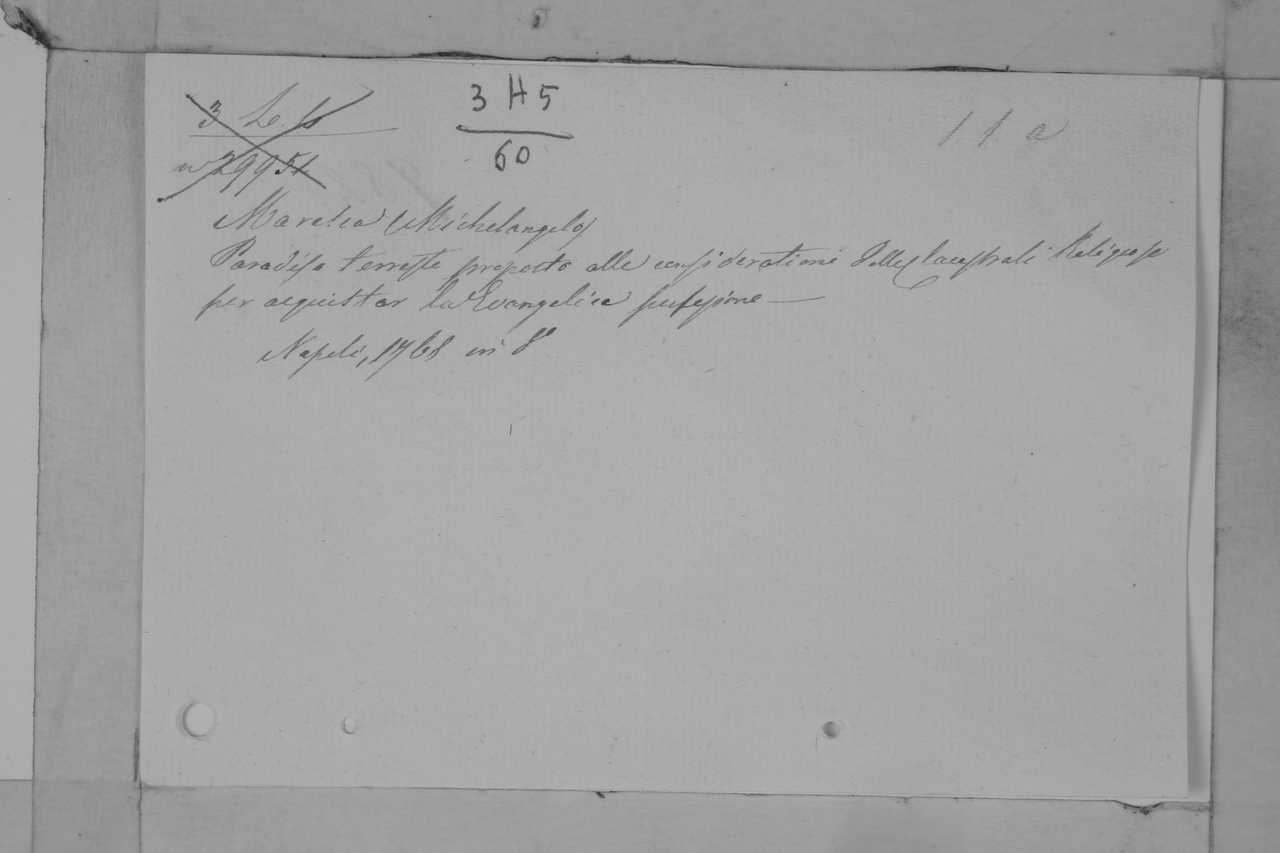 3 H 5
60
11 a
n 29951
Maretia (Michelangelo)
Paradiso terreste proposto alle considerationi delle claustrali Religiose
per acquistar la Evangelica perfezione
Napoli, 1768 in 8°